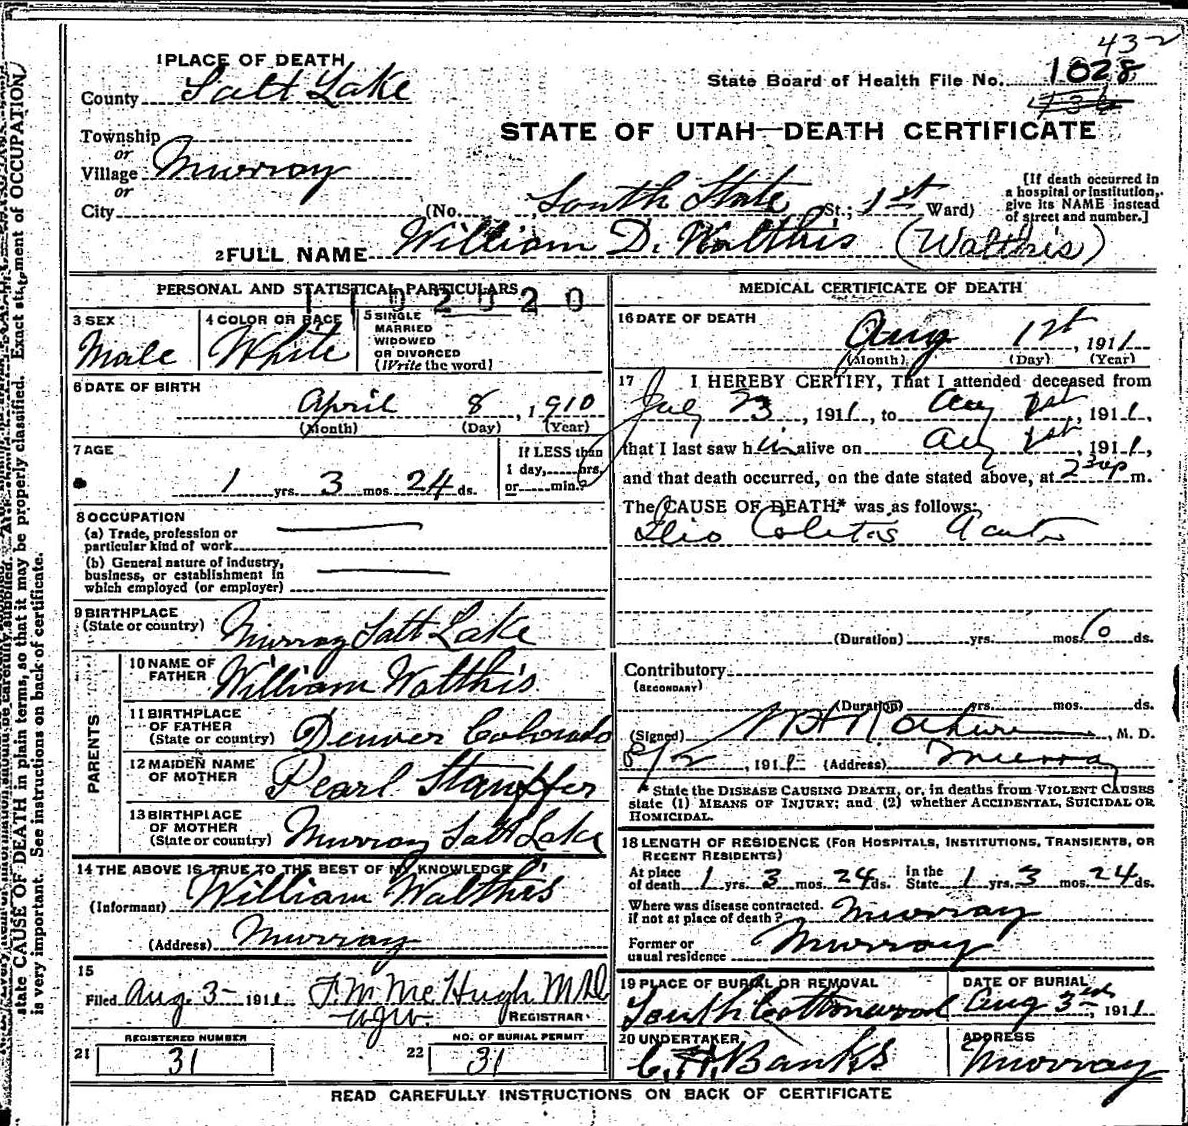 432
1 PLACE OF DEATH
State Board of Health File No. 1028
County Salt Lake
STATE OF UTAH—DEATH CERTIFICATE
Township
or
Village Murray
or
City (No. South State St.; 1st Ward)
[If death occurred in
a hospital or institution,
give its NAME instead
of street and number.]
2 FULL NAME William D. Walthis (Walthis)
PERSONAL AND STATISTICAL PARTICULARS
1102020
3 SEX
Male
4 COLOR OR RACE
White
5 SINGLE
MARRIED
WIDOWED
OR DIVORCED
(Write the word)
6 DATE OF BIRTH
April 8, 1910
(Month) (Day) (Year)
7 AGE
1 yrs. 3 mos. 24 ds.
If LESS than
1 day, hrs.
or min.?
8 OCCUPATION
(a) Trade, profession or
particular kind of work
(b) General nature of industry,
business, or establishment in
which employed (or employer)
9 BIRTHPLACE
(State or country) Murray Salt Lake
PARENTS
10 NAME OF
FATHER William Walthis
11 BIRTHPLACE
OF FATHER
(State or country) Denver Colorado
12 MAIDEN NAME
OF MOTHER Pearl Stampfer
13 BIRTHPLACE
OF MOTHER
(State or country) Murray Salt Lake
14 THE ABOVE IS TRUE TO THE BEST OF MY KNOWLEDGE
(Informant) William Walthis
(Address) Murray
15
Filed Aug. 3 1911 F. M. McHugh MD
W.J.W. REGISTRAR
REGISTERED NUMBER
21 31
NO. OF BURIAL PERMIT
22 31
MEDICAL CERTIFICATE OF DEATH
16 DATE OF DEATH
Aug 1st, 1911
(Month) (Day) (Year)
17 I HEREBY CERTIFY, That I attended deceased from
July 23, 1911, to Aug 1st, 1911,
that I last saw him alive on Aug 1st, 1911,
and that death occurred, on the date stated above, at 2 30 p m.
The CAUSE OF DEATH* was as follows:
Ilio Colitis Acute
(Duration) yrs. mos. 10 ds.
Contributory
(SECONDARY)
(Duration) yrs. mos. ds.
(Signed) M. D.
8/2, 1911 (Address) Murray
* State the DISEASE CAUSING DEATH, or, in deaths from VIOLENT CAUSES
state (1) MEANS OF INJURY; and (2) whether ACCIDENTAL, SUICIDAL OR
HOMICIDAL.
18 LENGTH OF RESIDENCE (FOR HOSPITALS, INSTITUTIONS, TRANSIENTS, OR
RECENT RESIDENTS)
At place
of death 1 yrs. 3 mos. 24 ds. In the
State 1 yrs. 3 mos. 24 ds.
Where was disease contracted,
if not at place of death? Murray
Former or
usual residence Murray
19 PLACE OF BURIAL OR REMOVAL
South Cottonwood
DATE OF BURIAL
Aug 3rd, 1911
20 UNDERTAKER
C. H. Banks
ADDRESS
Murray
READ CAREFULLY INSTRUCTIONS ON BACK OF CERTIFICATE
state CAUSE OF DEATH in plain terms, so that it may be properly classified. Exact statement of OCCUPATION
is very important. See instructions on back of certificate.